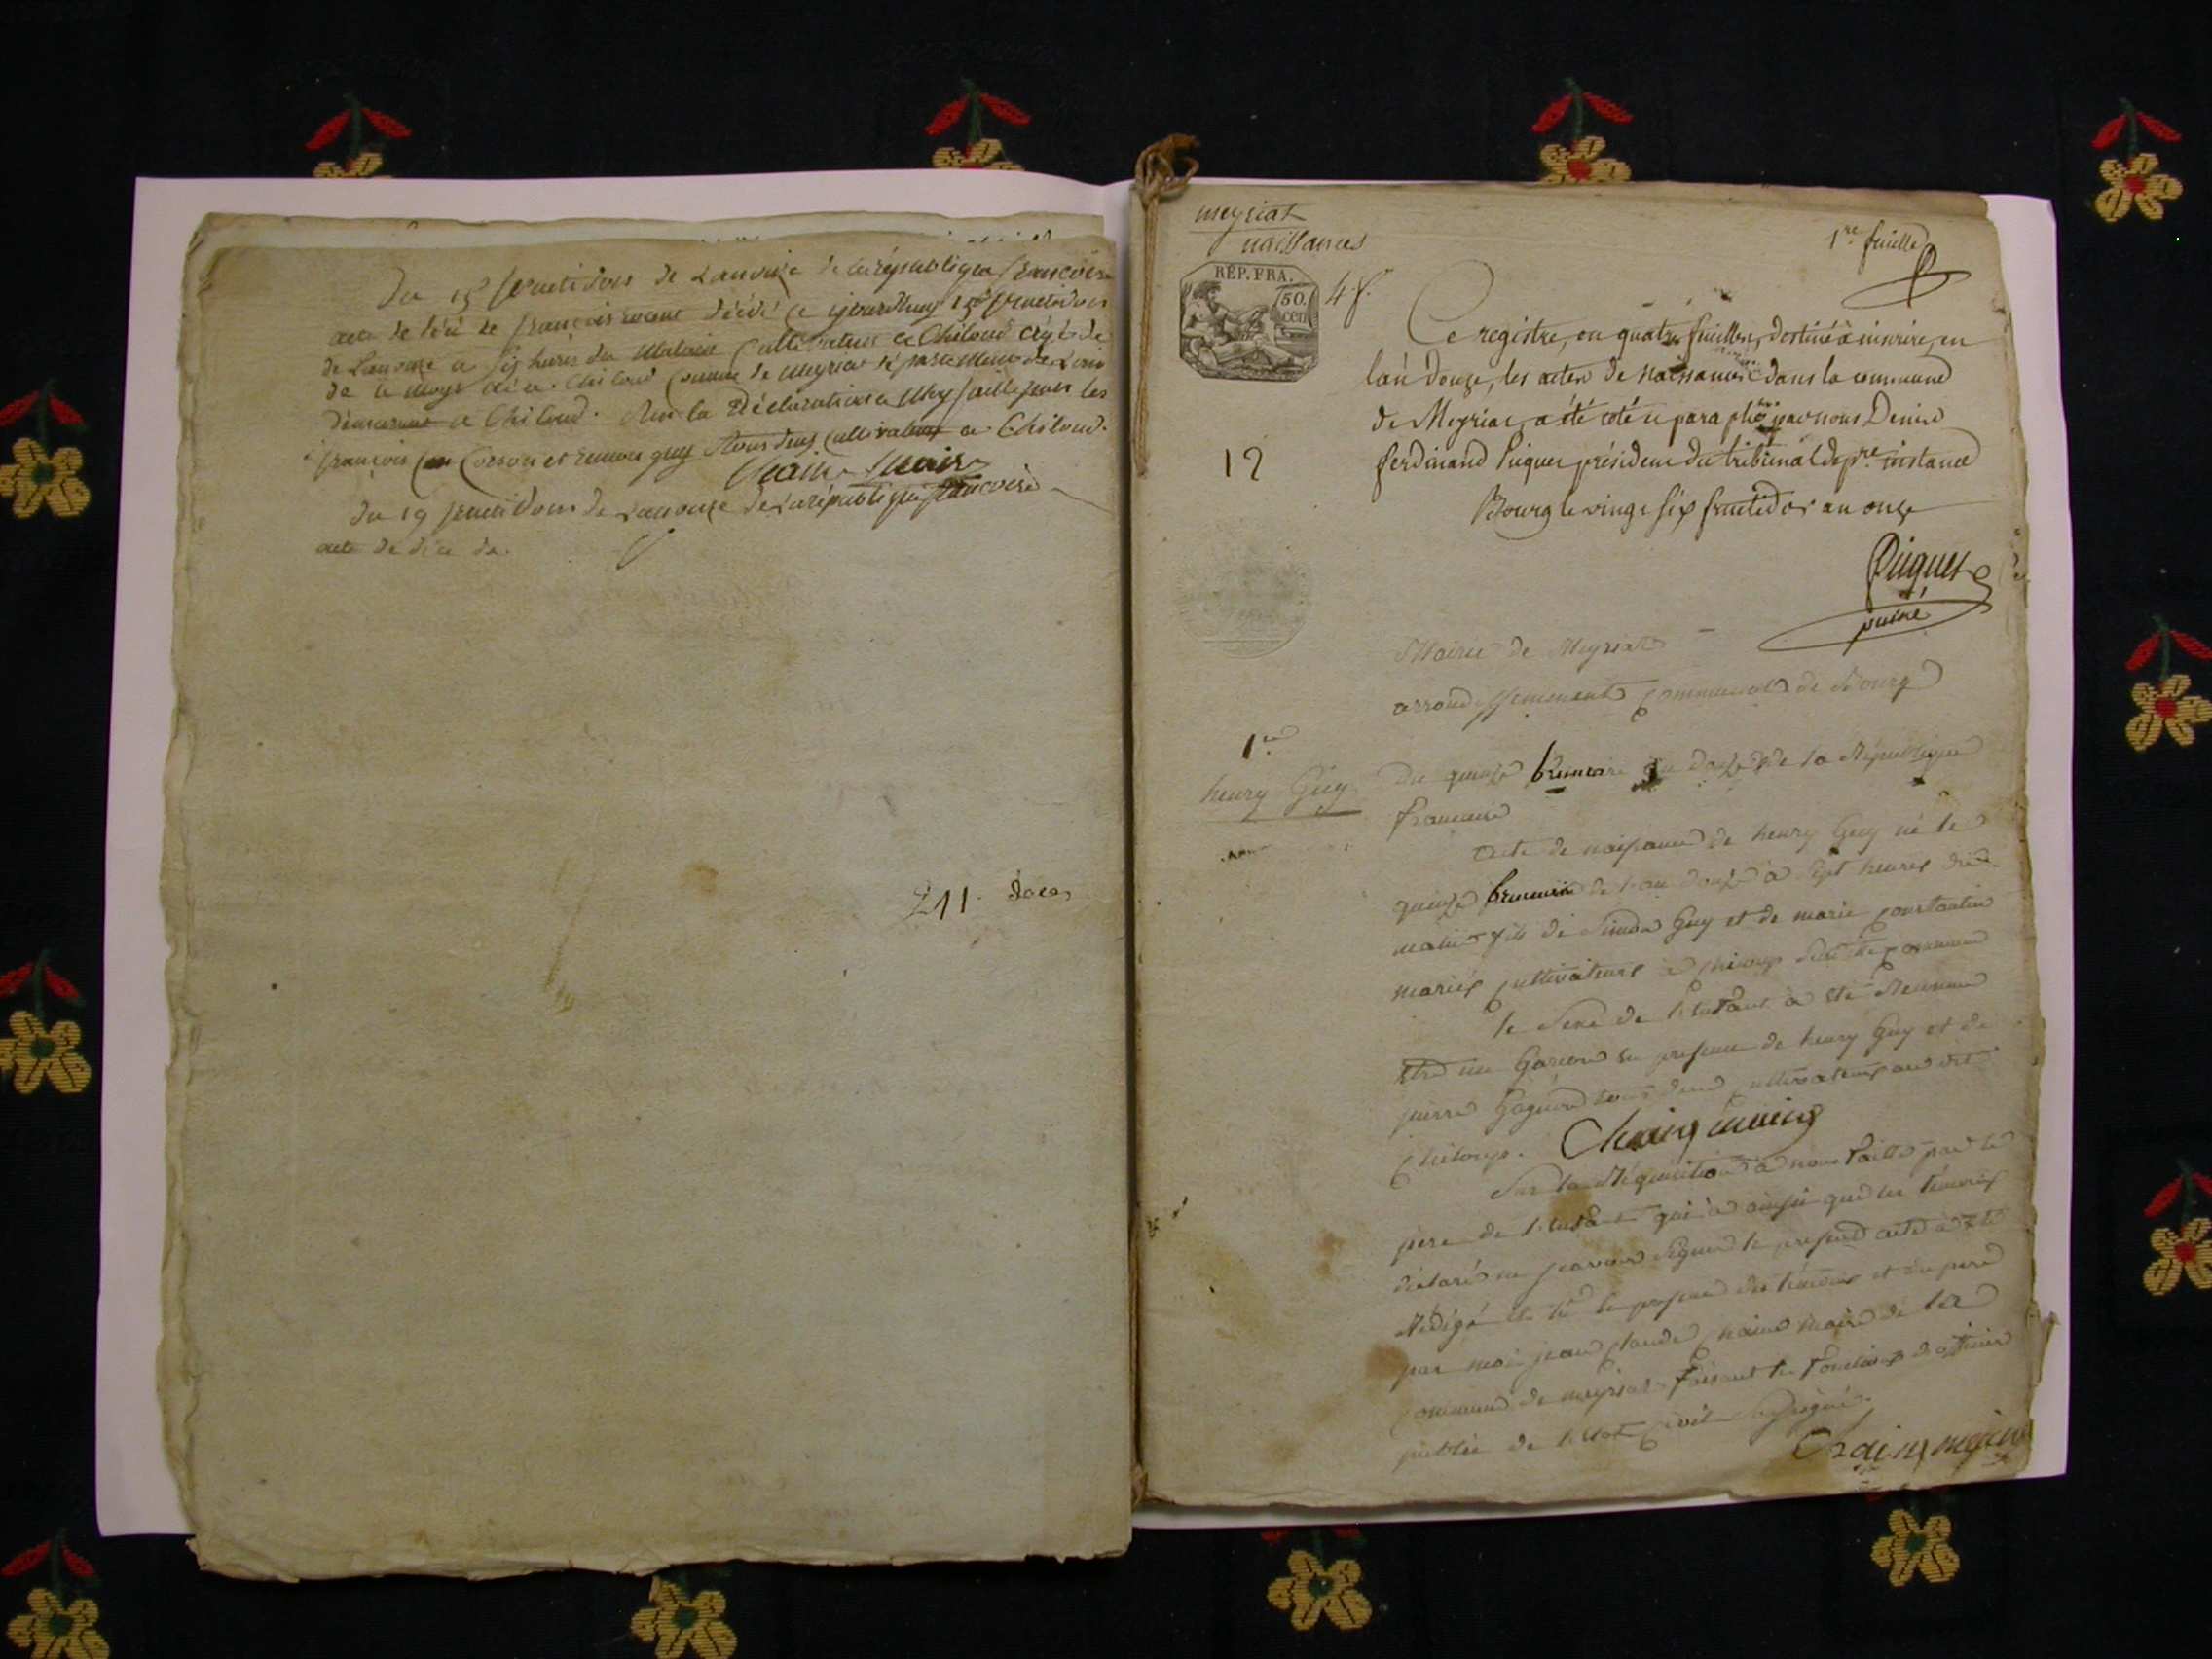 Du 15 fructidor de Lan onze de la république francoise
acte de décé de francois décédé ce 15 fructidor
de Lan onze a six heures du Matain Cultivateur a Chiloud agé de
de Chiloud Commune de meyria département de Lain
demeurant a Chiloud. Sur la Déclaration a Moy faitte par les
françois Corson et guy tous deux Cultivateur a Chiloud.
Chain Maire
Du 19 fructidor de Lan onze de La république francoise
acte de décé de
£11. doces
meyriat
naissances
1re feuille
RÉP. FRA.
50.
cen
4 f.
Ce registre, en quatre feuilles, destiné à inscrire, en
l'an Douze, les actes de naissance dans la commune
de Meyriac, a été coté et paraphé par nous Denis
12
ferdinand Piquet président du tribunal de pre. instance
Bourg le vingt six fructidor an onze
Piquet
puiné
Mairie de Meyriat
arrondissement communal de Bourg
1er
henry Guy
Du quinze frimaire an douze de la République
francaise
acte de naissance de henry Guy né le
quinze frimaire de l'an douze à sept heures du
matin fils de Guy et de marie constantin
mariés cultivateurs à chiloup commune
le sexe de l'enfant à été reconnu
être un Garcon en presence de henry Guy et de
pierre tous deux cultivateurs au dit
Chiloup. Chaing maire
Sur la Réquisition à nous faitte par le
pere de l'enfant qui à ainsi que les témoins
déclaré ne scavoir signer le present acte à été
rédigé et lû en presence des témoins et du pere
par moi jean claude chaine maire de la
commune de meyriat faisant les fonctions d'officier
public de l'état civil soussigné.
Chaing maire